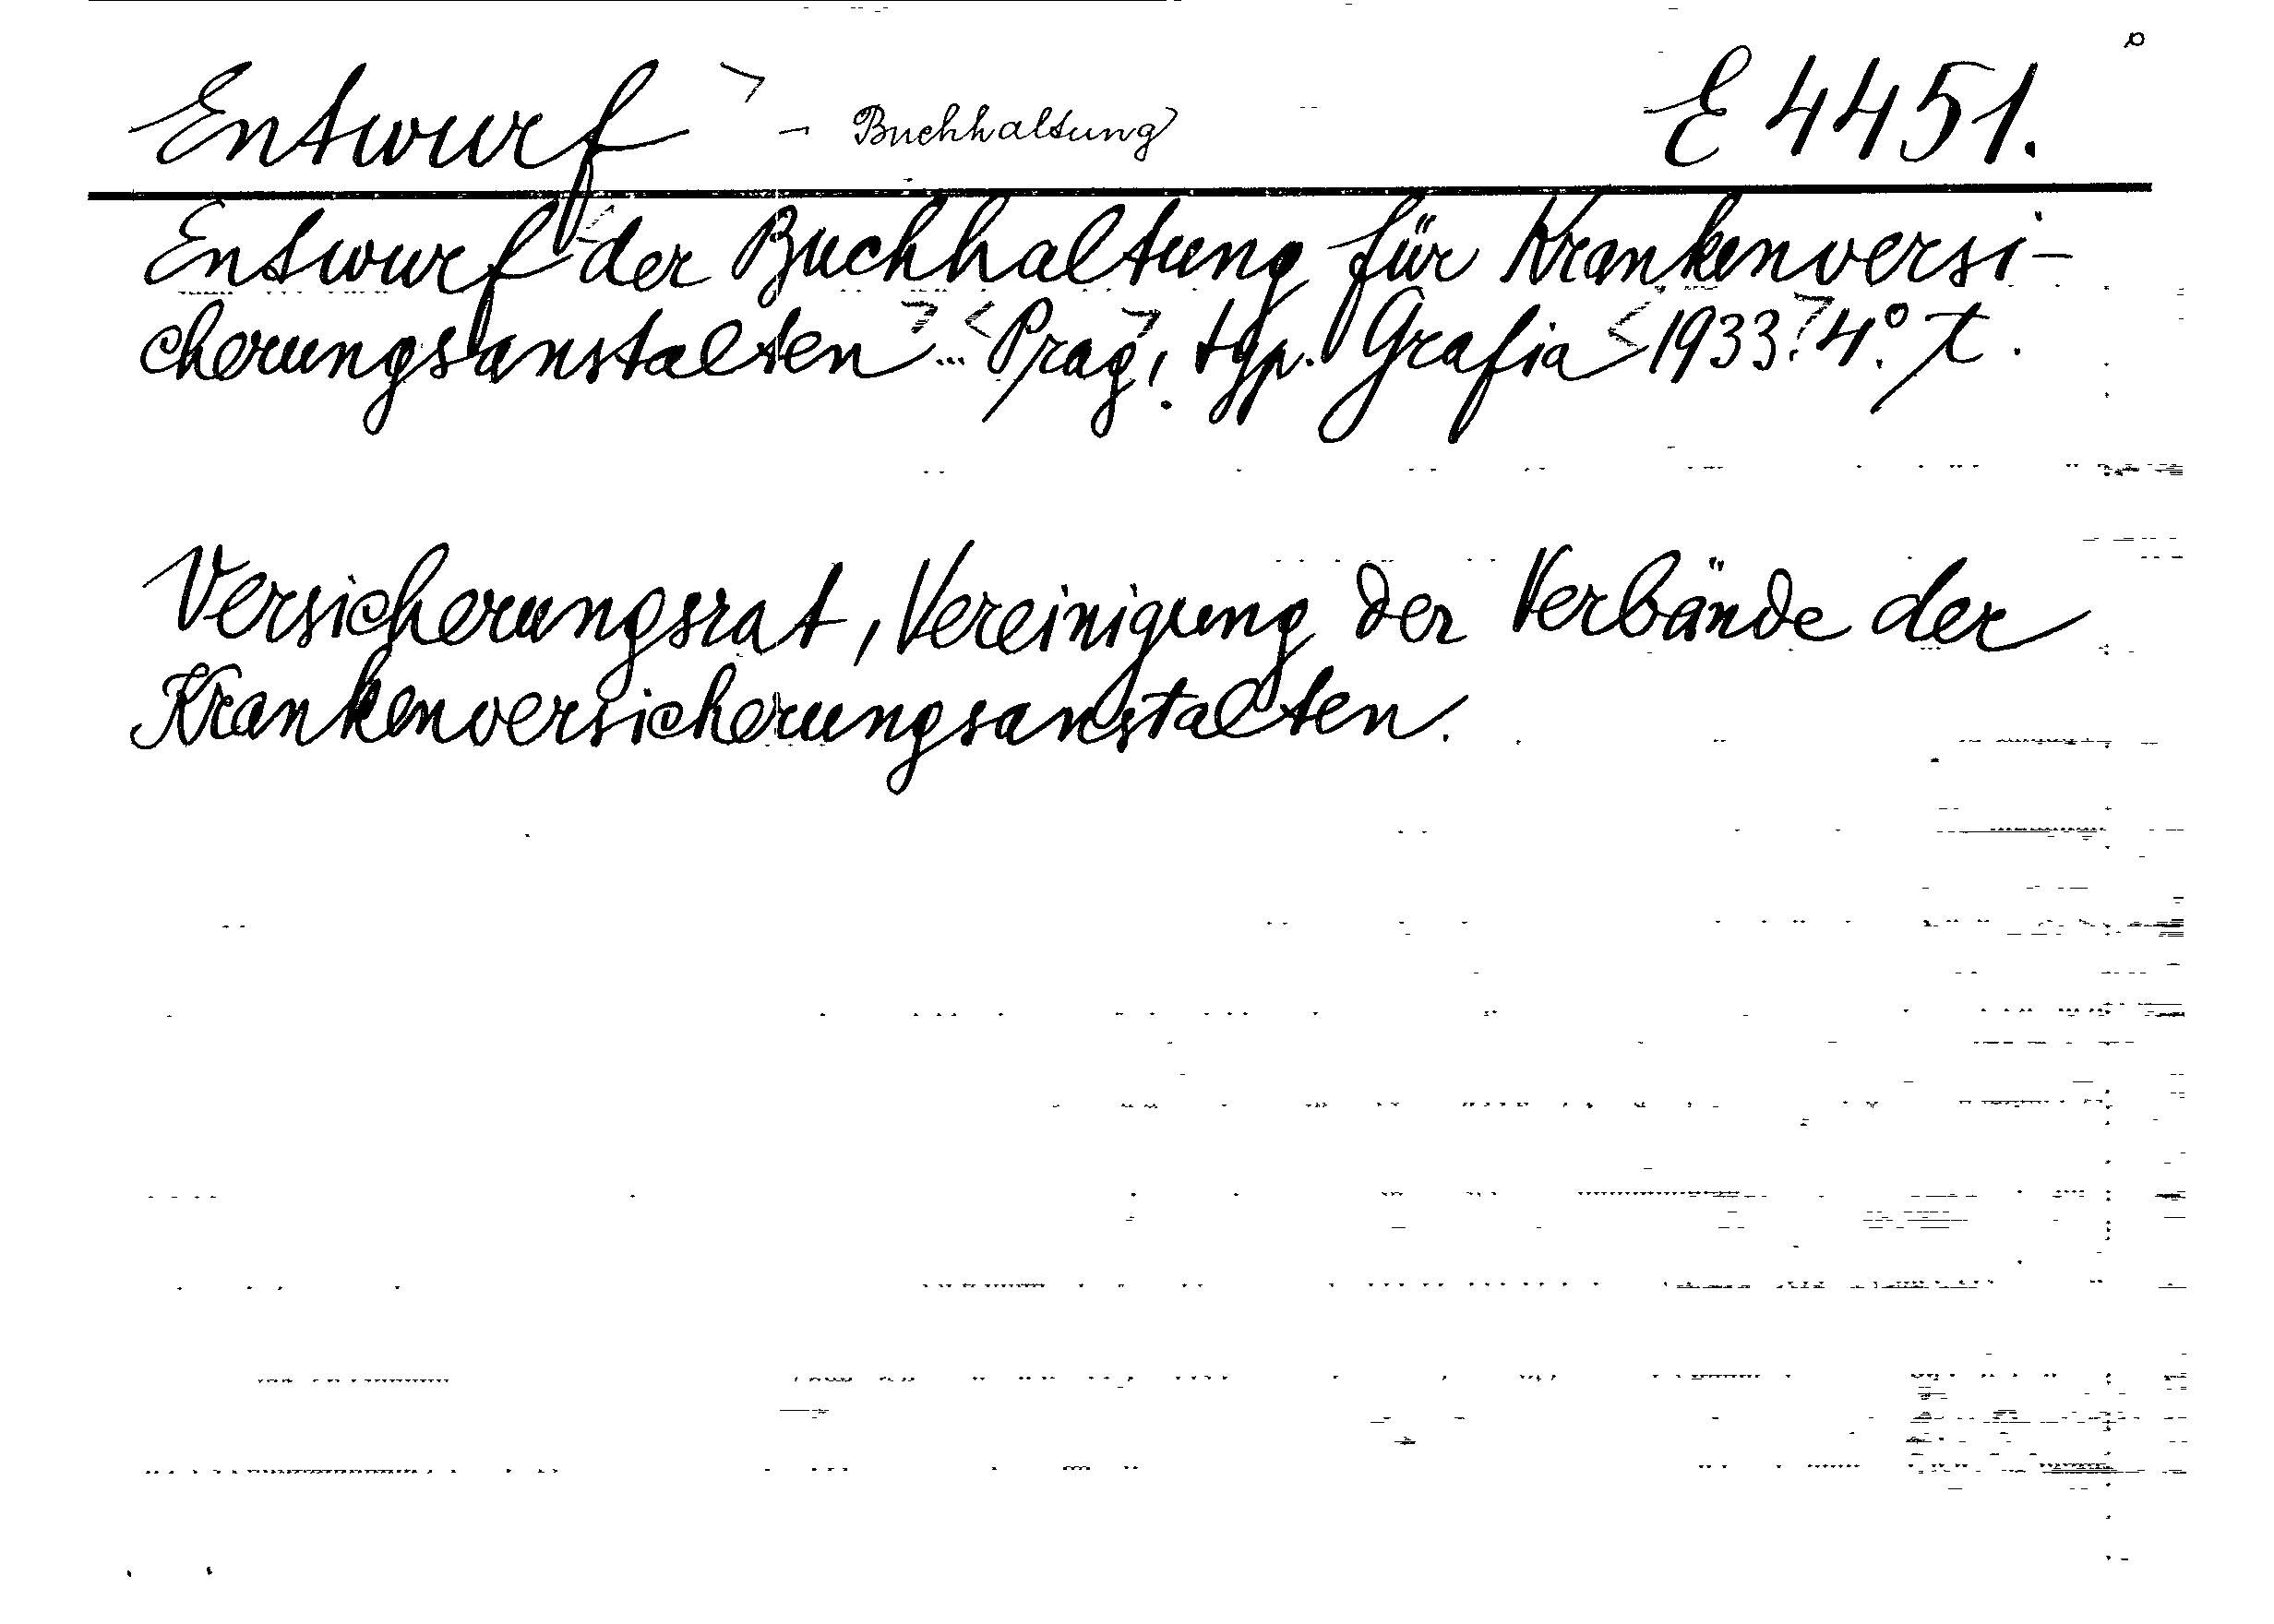 Entwurf - Buchhaltung E 4451.
Entwurf der Buchhaltung für Krankenversi-
cherungsanstalten ... Prag, typ. Grafia 1933. 4°. t.
Versicherungsrat, Vereinigung der Verbände der
Krankenversicherungsanstalten.